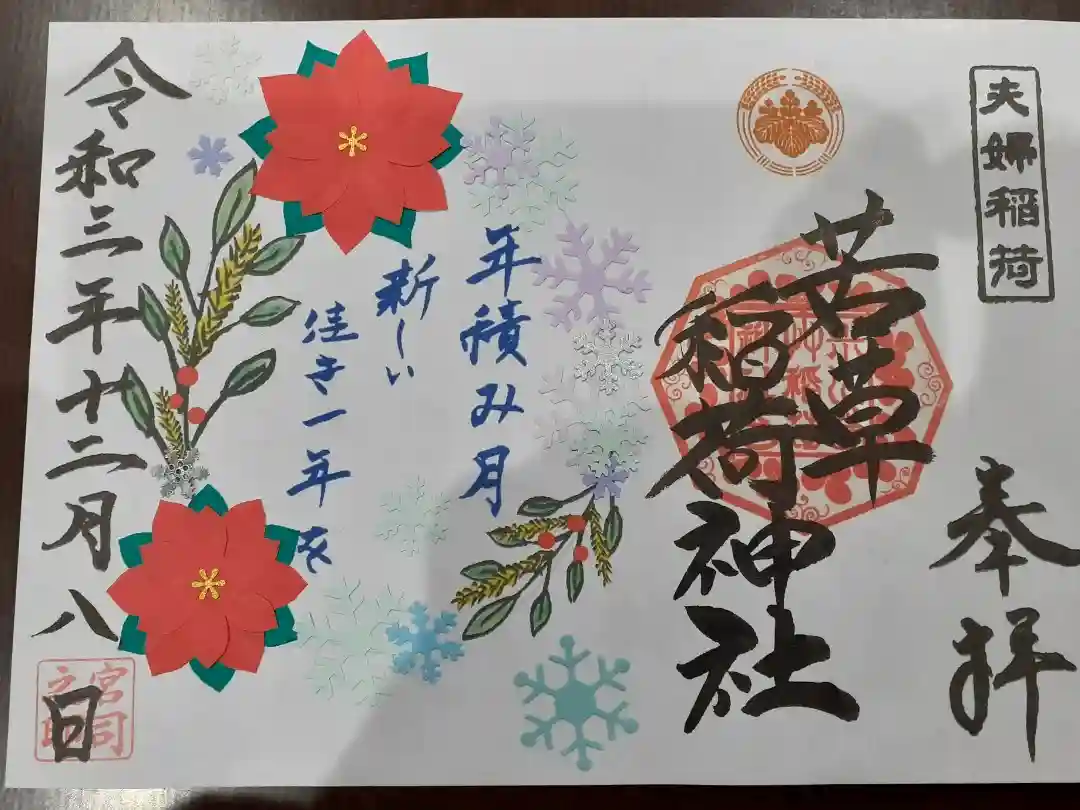 夫婦稲荷
奉拝
若草
稲荷神社
年積み月
新しい
佳き一年を
令和三年十二月八日
宮司
之印